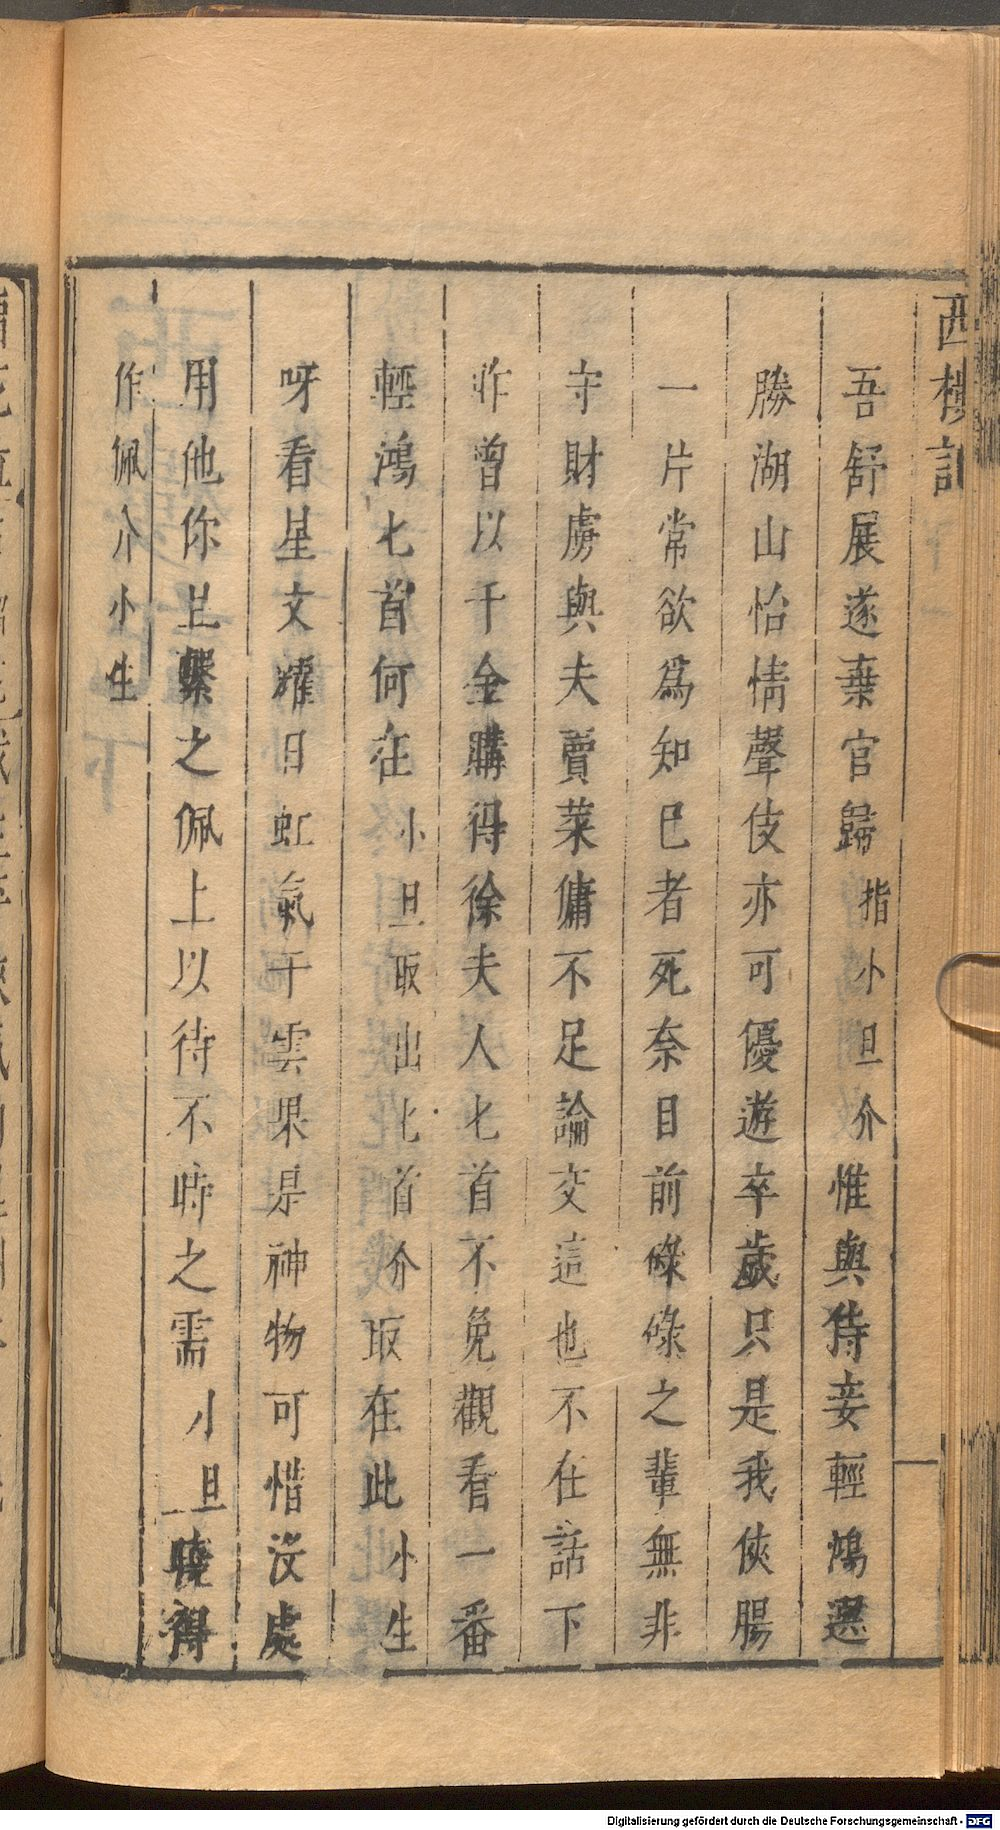 西樓記
吾舒展遂棄官歸指小旦介惟與侍妾輕鴻選
勝湖山怡情聲伎亦可優遊卒歲只是我俠腸
一片常欲為知巳者死奈目前碌碌之輩無非
守財虜與夫賣菜傭不足論交這也不在話下
昨曾以千金購得徐夫人匕首不免觀看一番
輕鴻匕首何在小旦取出匕首介取在此小生
呀看星文燿日虹氣干雲果是神物可惜沒處
用他你且繫之佩上以待不時之需小旦曉得
作佩介小生
Digitalisierung gefördert durch die Deutsche Forschungsgemeinschaft - DFG